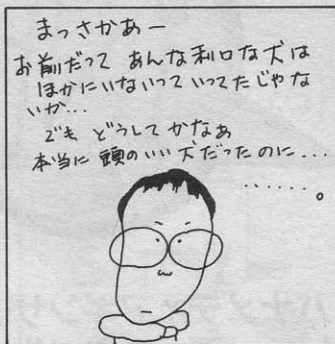 まっさかあー
お前だって あんな利口な犬は
ほかにいないって いってたじゃな
いか...
でも どうして かなあ
本当に 頭の いい 犬だったのに...
......。